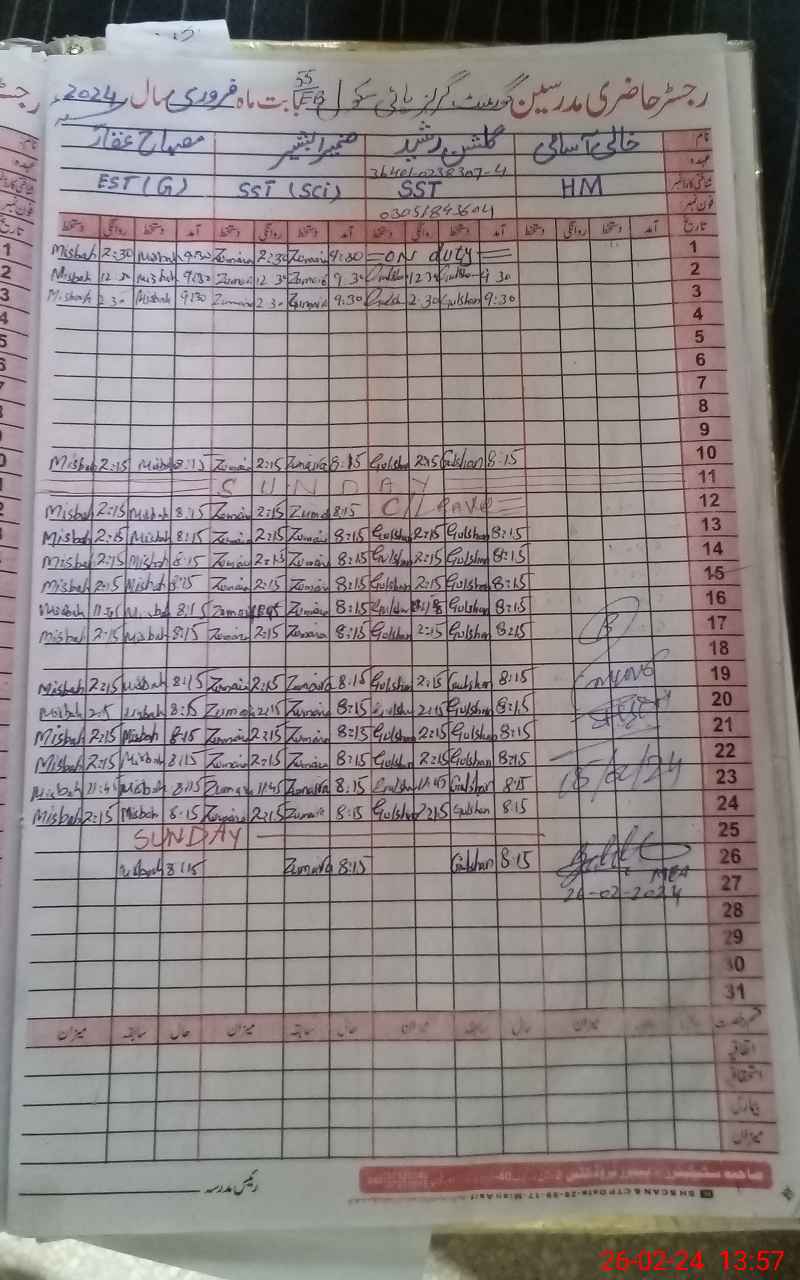 رجسٹر حاضری مدرسین گورنمنٹ گرلز ہائی سکول 55/EB بابت ماہ فروری سال 2024
نام خالی آسامی گلشن رشید مصباح غفار
عہدہ 36401-0238307-4
شناختی کارڈ نمبر HM SST SST (Sci) EST (G)
فون نمبر 03051843604
تاریخ آمد دستخط روانگی دستخط آمد دستخط روانگی دستخط آمد دستخط روانگی دستخط آمد دستخط روانگی دستخط
Misbah 2:30 Misbah 9:30 Zumaira 2:30 Zumaira 9:30 =ON duty= 1
Misbah 12:30 Misbah 9:30 Zumaira 12:30 Zumaira 9:30 Gulshan 12:30 Gulshan 9:30 2
Misbah 2:30 Misbah 9:30 Zumaira 2:30 Zumaira 9:30 Gulshan 2:30 Gulshan 9:30 3
4
5
6
7
8
9
Misbah 2:15 Misbah 8:15 Zumaira 2:15 Zumaira 8:15 Gulshan 2:15 Gulshan 8:15 10
SUNDAY 11
Misbah 2:15 Misbah 8:15 Zumaira 2:15 Zumaira 8:15 C/Leave= 12
Misbah 2:15 Misbah 8:15 Zumaira 2:15 Zumaira 8:15 Gulshan 2:15 Gulshan 8:15 13
Misbah 2:15 Misbah 8:15 Zumaira 2:15 Zumaira 8:15 Gulshan 2:15 Gulshan 8:15 14
Misbah 2:15 Misbah 8:15 Zumaira 2:15 Zumaira 8:15 Gulshan 2:15 Gulshan 8:15 15
Misbah Misbah 8:15 Zumaira Zumaira 8:15 Gulshan Gulshan 8:15 16
Misbah 2:15 Misbah 8:15 Zumaira 2:15 Zumaira 8:15 Gulshan 2:15 Gulshan 8:15 17
18
Misbah 2:15 Misbah 8:15 Zumaira 2:15 Zumaira 8:15 Gulshan 2:15 Gulshan 8:15 19
Misbah 2:15 Misbah 8:15 Zumaira 2:15 Zumaira 8:15 Gulshan 2:15 Gulshan 8:15 20
Misbah 2:15 Misbah 8:15 Zumaira 2:15 Zumaira 8:15 Gulshan 2:15 Gulshan 8:15 21
Misbah 2:15 Misbah 8:15 Zumaira 2:15 Zumaira 8:15 Gulshan 2:15 Gulshan 8:15 22
Misbah 11:45 Misbah 8:15 Zumaira 11:45 Zumaira 8:15 Gulshan 11:45 Gulshan 8:15 23
Misbah 2:15 Misbah 8:15 Zumaira 2:15 Zumaira 8:15 Gulshan 2:15 Gulshan 8:15 24
SUNDAY 25
Misbah 8:15 Zumaira 8:15 Gulshan 8:15 26
MEA
26-02-2024 27
28
29
30
31
حال سابقہ میزان حال سابقہ میزان حال سابقہ میزان
اتفاقی
استحقاقی
بیماری
میزان
رئیس مدرسہ
26-02-24 13:57